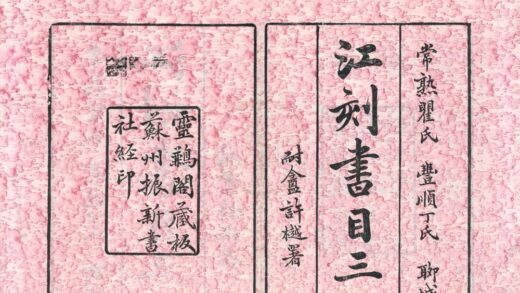 常熟瞿氏 豐順丁氏 聊
江刻書目三
耐盦許樾署
靈鶼閣藏板
蘇州振新書
社經印